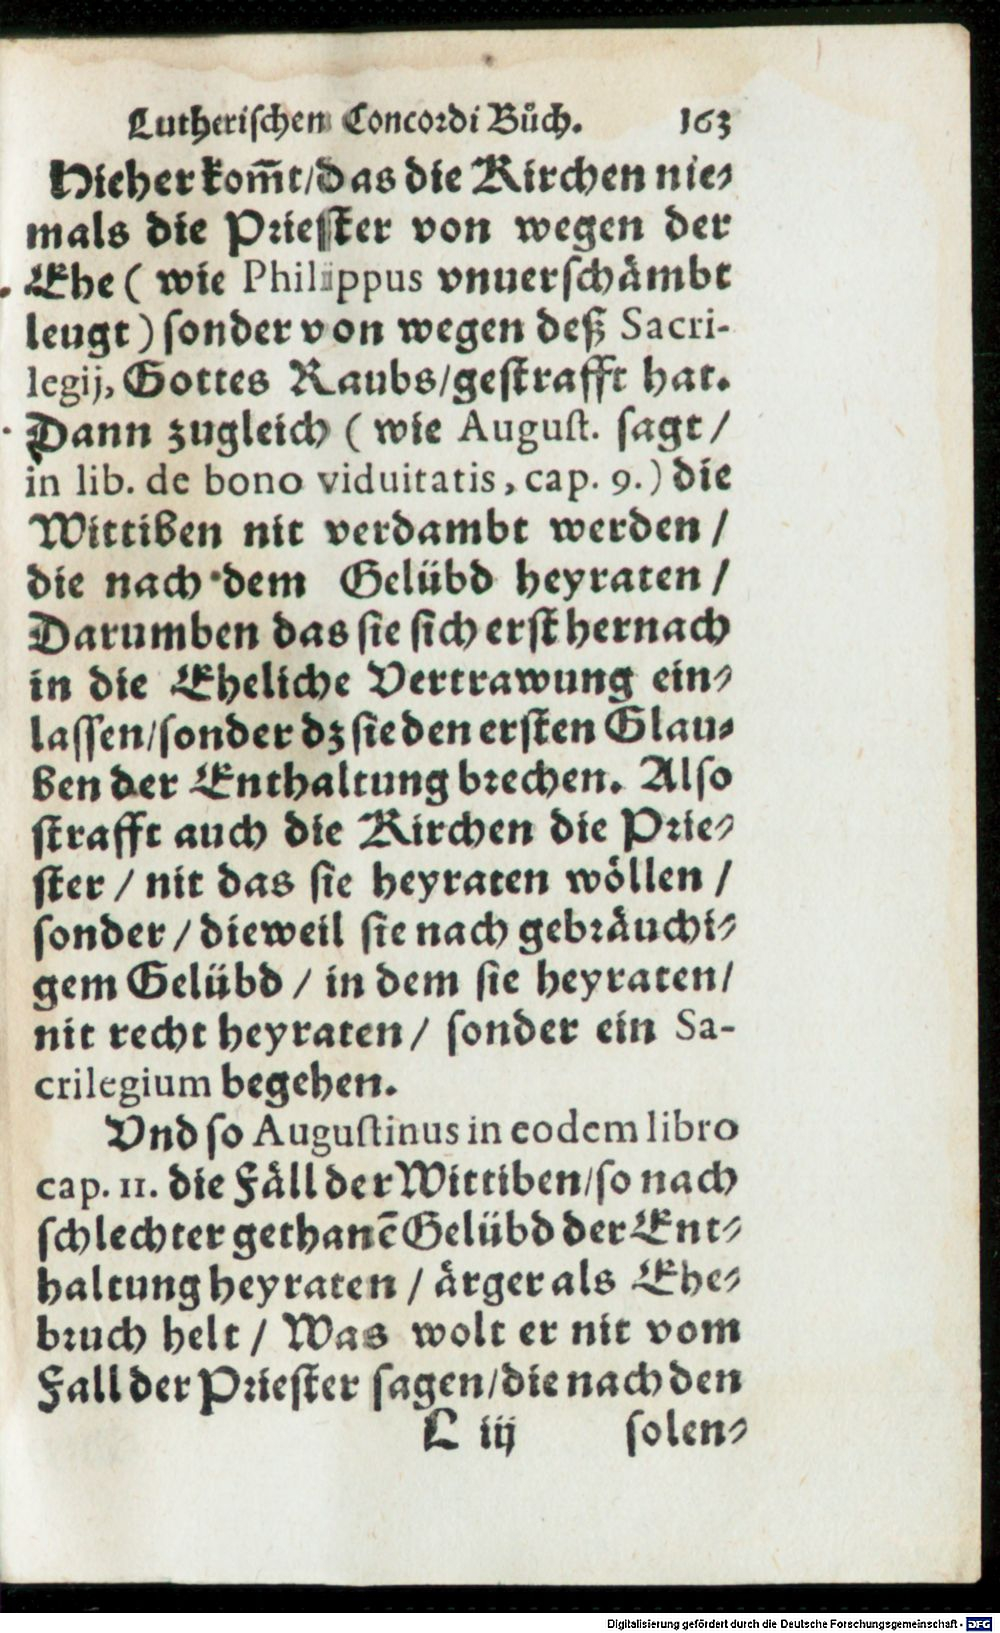 Lutherischen Concordi Bůch. 163
Hieher kom̃t/das die Kirchen nie-
mals die Priester von wegen der
Ehe ( wie Philippus vnuerschämbt
leugt ) sonder von wegen deß Sacri-
legij, Gottes Raubs/gestrafft hat.
Dann zugleich ( wie August. sagt /
in lib. de bono viduitatis, cap. 9. ) die
Wittiben nit verdambt werden /
die nach dem Gelübd heyraten /
Darumben das sie sich erst hernach
in die Eheliche Vertrawung ein-
lassen/sonder dz sie den ersten Glau-
ben der Enthaltung brechen. Also
strafft auch die Kirchen die Prie-
ster / nit das sie heyraten wöllen /
sonder / dieweil sie nach gebräuchi-
gem Gelübd / in dem sie heyraten/
nit recht heyraten / sonder ein Sa-
crilegium begehen.
Vnd so Augustinus in eodem libro
cap. 11. die Fäll der Wittiben/so nach
schlechter gethanẽ Gelübd der Ent-
haltung heyraten / ärger als Ehe-
bruch helt / Was wolt er nit vom
Fall der Priester sagen/die nach den
L iij solen-
Digitalisierung gefördert durch die Deutsche Forschungsgemeinschaft - DFG